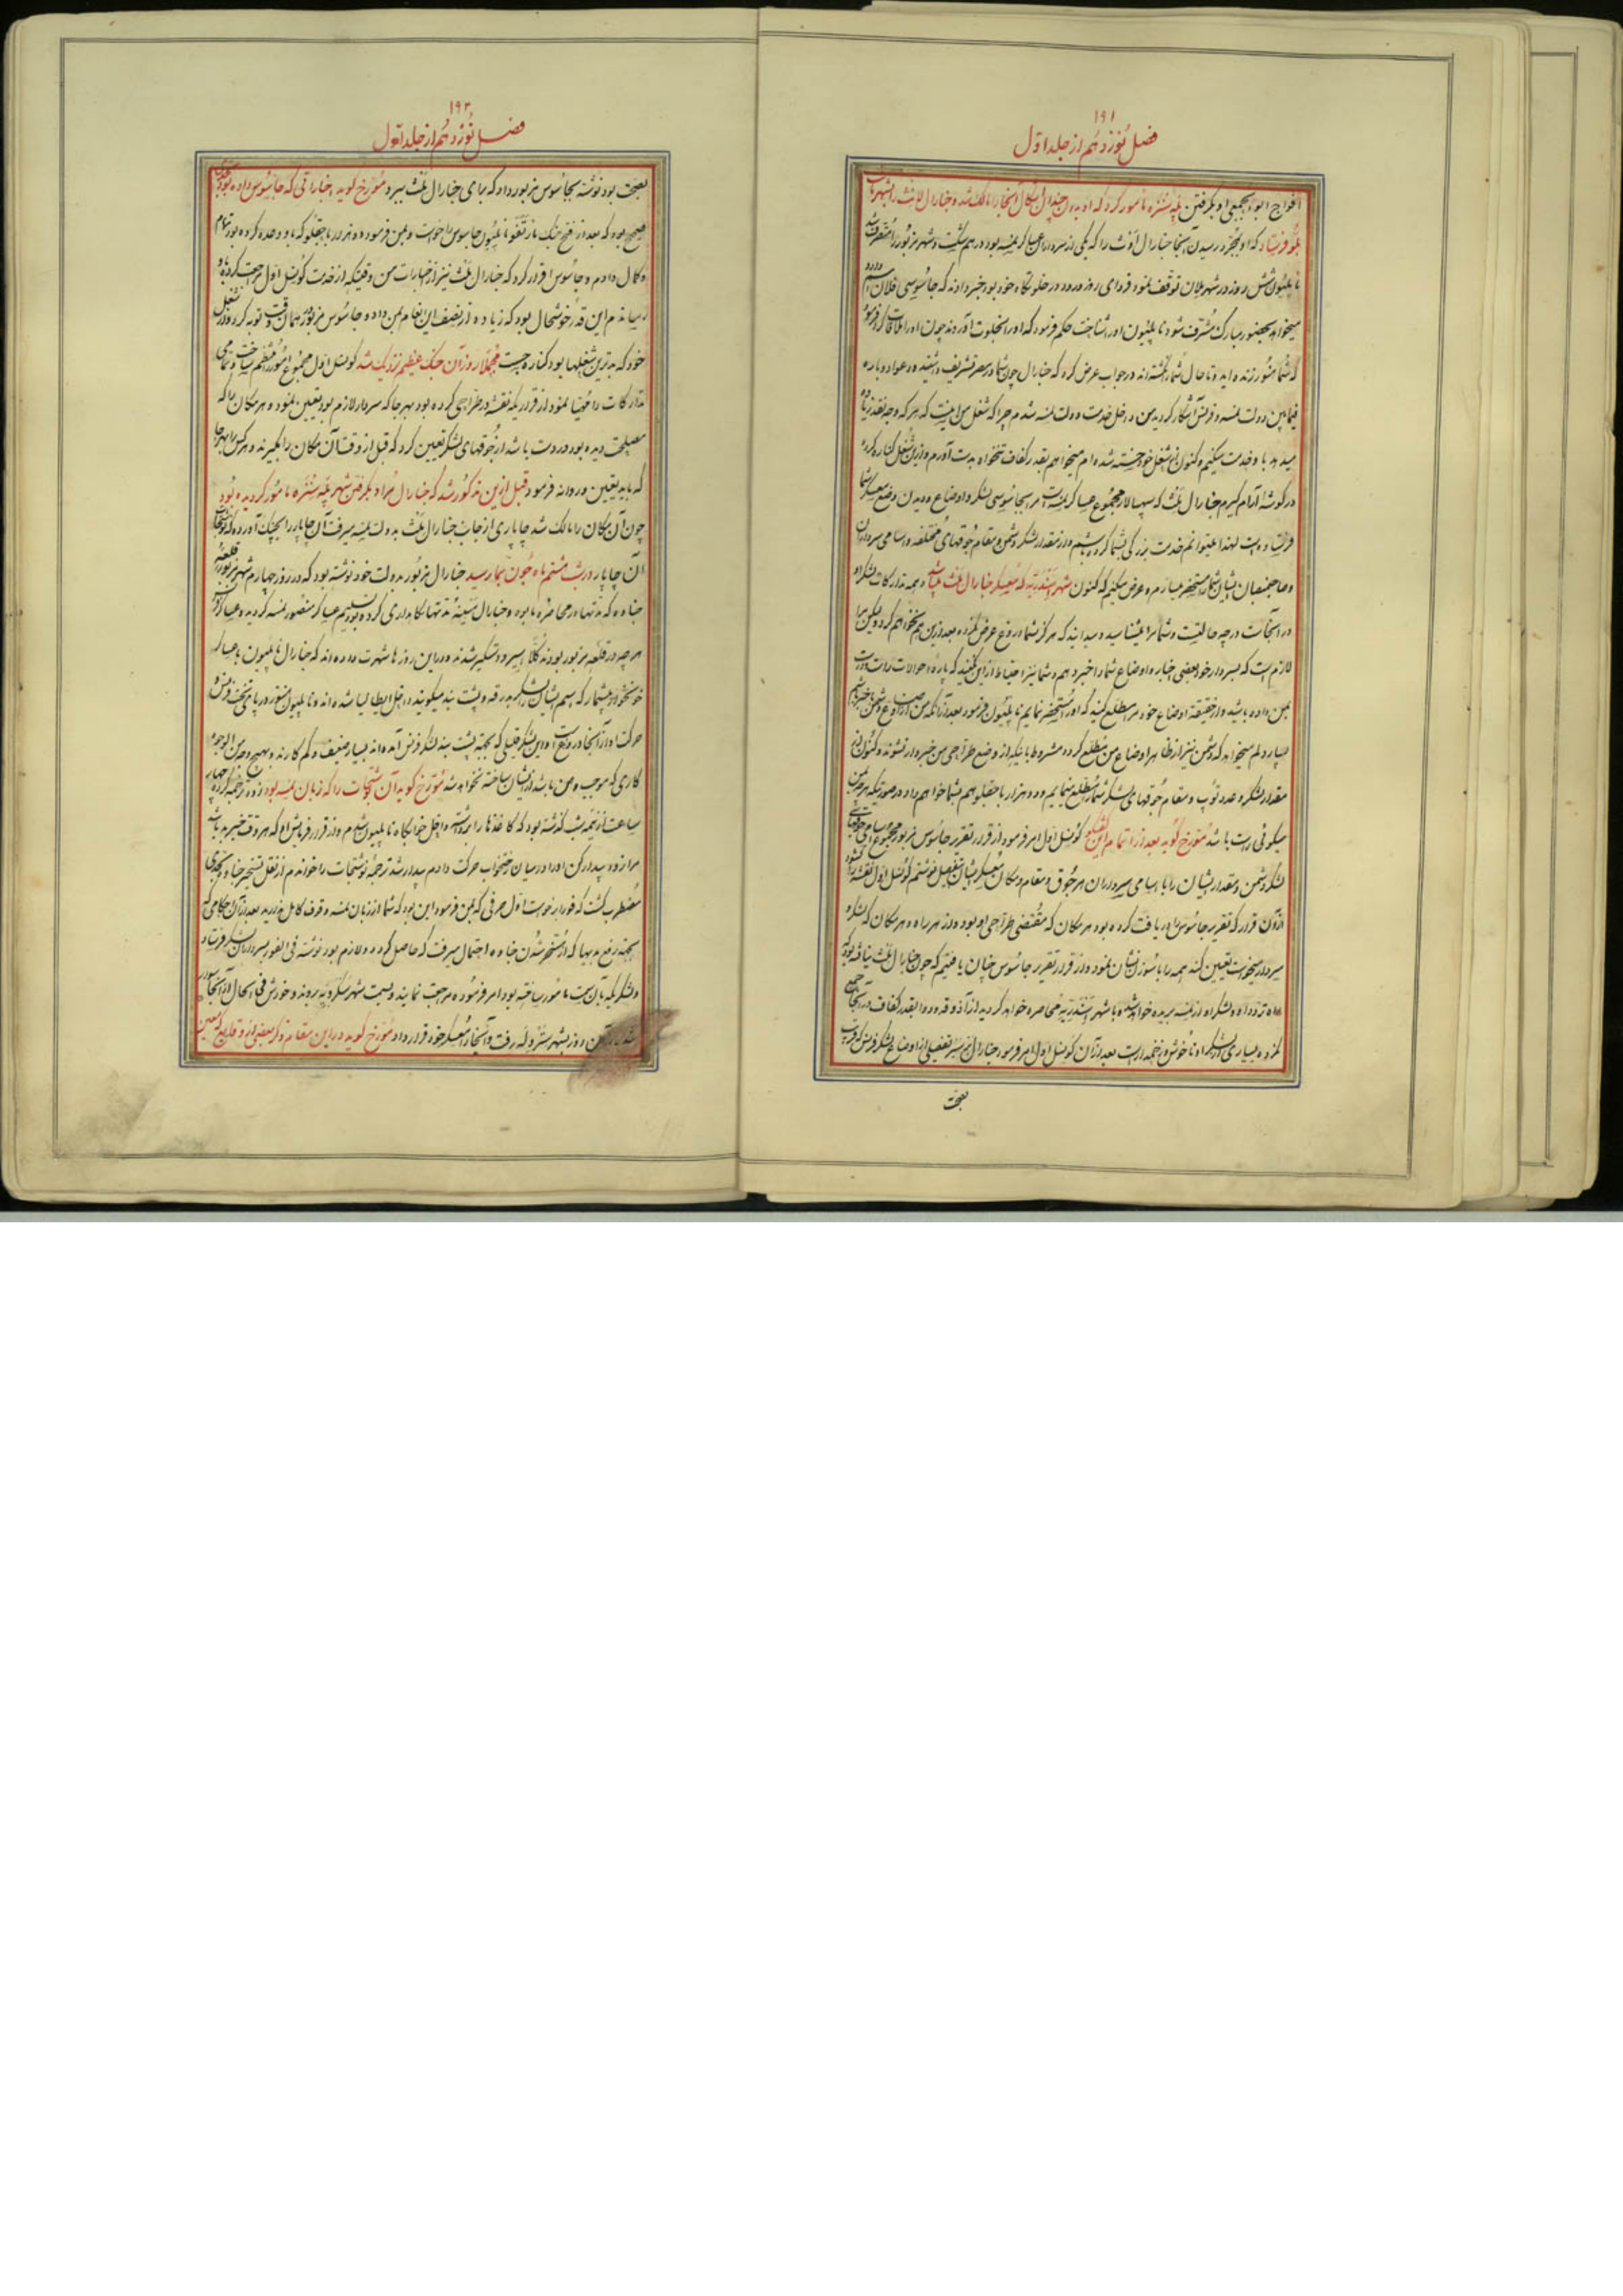 ۱۹۱
فصل نوزدهم از جلد اوّل
افواج ابوابجمعی او بگرفتن مأمور کرد که او بدون جدال آنجا را مالک شد و جنارال
فرستاد که او بمجرد رسیدن آنجا جنارال را که یکی از سرداران عساکر نمسه بود درهم شکست و شهر مزبور را متصرف شد
ناپلیون شش روز در شهر میلان توقف نمود فردای روز ورود در خلوتگاه خود بود خبر دادند که جاسوسی فلان اسم
میخواهد بحضور مبارک مشرف شود ناپلیون او را شناخت حکم فرمود که او را بخلوت آوردند چون او را ملاقات کرد فرمود
که شما هنوز زنده اید و تا حال شما را نکشته اند در جواب عرض کرد که جنارال چون شما در مصر تشریف داشتید دعوا دوباره
فیمابین دولت نمسه و فرانسه آشکار گردید من داخل خدمت دولت نمسه شدم چرا که شغل من اینست که هر که وجه نقد زیاده
میدهد باو خدمت میکنم و کنون از شغل خود خسته شده ام میخواهم بقدر کفاف تنخواه بدست آورم و ازین شغل کناره کرده
در گوشه آرام گیرم جنارال که سپهسالار مجموع عساکر نمسه است مرا بجاسوسی لشکر و اوضاع و دیدن وضع معسکر شما
فرستاده است لهذا میتوانم خدمت بزرگی بشما کرده باشم و از مقدار لشکر دشمن و مقام جوقهای مختلفه و اسامی سرداران
و صاحبمنصبان ایشان شما را مستحضر سازم و عرض میکنم که کنون شهر که معسکر جنارال میباشد و همه تدارکات لشکر او
در آنجاست در چه حالتست و شما مرا میشناسید و میدانید که هرگز بشما دروغ عرض نکرده و بعد ازین هم نخواهم کرد ولیکن مرا
لازمست که بسردار خود بعضی اخبار و اوضاع شما را خبر دهم و شما نیز احتیاط ازین نکنید که پاره احوالات راست و درست
بمن داده باشید و از حقیقة اوضاع خود مرا مطلع کنید که او را مستحضر نمایم ناپلیون فرمود بعد از آنکه من از اوضاع دشمن باخبر باشم
بسیار دلم میخواهد که دشمن نیز از ظاهر اوضاع من مطلع گردد مشروط باینکه از وضع طراحی من خبردار نشوند و کنون از
مقدار لشکر و عدد توپ و مقام جوقهای لشکر شما را مطلع مینمایم و دو هزار باجقلو هم بشما خواهم داد در صورتیکه هر چه بمن
میگوئی راست باشد مورّخ گوید بعد از اتمام این گفتگو کونسل اوّل امر فرمود از قرار تقریر جاسوس مزبور مجموع
لشکر دشمن و مقدار ایشان را با اسامی سرداران هر جوق و مقام و مکان معسکر ایشان بتفصیل نوشتم کونسل اوّل نقشه
از آن قرار که تقریر جاسوس را دریافت کرده بود هر مکان که مقتضی طراحی او بود و از هر راه و هر مکان که لشکر و
سردار میخواست تعیین کند همه را با سوزن نشان نمود و از قرار تقریر جاسوس چنان یافتیم که چون جنارال
راه تردد او و لشکر او از نمسه بریده خواهد شد و با شهر محاصره خواهد گردید از آذوقه و دواب بقدر کفاف در آنجا جمع
نکرده و بسیاری از لشکر او ناخوش و زخمدار است بعد از آن کونسل اوّل امر فرمود جنارال نیز تفصیلی از اوضاع لشکر فرانسه که قریب
بصحّت
۱۹۲
فصل نوزدهم از جلد اوّل
بصحت بود نوشته بجاسوس مزبور داد که برای جنارال ببرد مورّخ گوید اخباراتی که جاسوس داده بود
صحیح بود که بعد از فتح جنگ مارنقو ناپلیون جاسوس را خواست و بمن فرمود دو هزار باجقلو که باو وعده کرده بود تمام
و کمال دادم و جاسوس اقرار کرد که جنارال نیز از اخبارات من وقتیکه از خدمت کونسل اوّل مراجعت کرده باو
رساندم این قدر خوشحال بود که زیاده از نصف این انعام بمن داد و جاسوس مزبور همان وقت توبه کرد و از شغل
خود که بدترین شغلها بود کناره جست مجملاً روز آن جنگ عظیم نزدیک شد کونسل اوّل مجموع امور را منظم ساخت و تمامی
تدارکات را مهیا نمود از قراریکه نقشه و طراحی کرده بود بهر جا که سردار لازم بود تعیین نمود و هر مکان را که
مصلحت دیده بود در دست باشد از جوقهای لشکر تعیین کرد که قبل از وقت آن مکان را بگیرند و هر کس را بهر جا
که باید تعیین و روانه فرمود قبل ازین مذکور شد که جنارال مراد بگرفتن شهر مأمور گردیده بود
چون آن مکان را مالک شد چاپاری از جانب جنارال بدولت نمسه میرفت آن چاپار را بچنگ آورده که نوشتجات
آن چاپار در شب هشتم ماه جون بما رسید جنارال مزبور بدولت خود نوشته بود که در روز چهارم شهر مزبور قلعه
جناوه که مدتها در محاصره ما بود و جنارال مدتها نگاهداری کرده بود تسلیم عساکر منصور نمسه گردید و عساکر
هر چه در قلعه مزبور بودند کلاً اسیر و دستگیر شدند و در این روزها شهرت داده اند که جنارال ناپلیون با عساکر
خونخوار بیشمار که اسم ایشان لشکر بدرقه و پشت بند میگویند داخل ایطالیا شده اند و ناپلیون هنوز در پای تخت فرانسه
حرکت او از آنجا دروغست و این لشکر قلیلی که بجهة پشت بند لشکر فرانسه آمده اند بسیار ضعیف و کم کارند و بهیچوجه من الوجوه
کاری که موجب وهن ما باشد از ایشان ساخته نخواهد شد مورّخ گوید آن نوشتجات را که زبان نمسه بود زود ترجمه کرده چهار
ساعت از نیمه شب گذشته بود که کاغذها را برداشته داخل خوابگاه ناپلیون شدم و از قرار فرمایش او که هر وقت خبر بد باشد
مرا زود بیدار کن او را در میان رختخواب حرکت دادم بیدار شد ترجمه نوشتجات را خواندم از نقل تسخیر جناوه بحدی
مضطرب گشت که فوراً برخواست اوّل حرفی که بمن فرمود این بود که شما از زبان نمسه وقوف کامل ندارید بعد از آن احکامی که
بجهة رفع بدیها که از مسخر شدن جناوه احتمال میرفت که حاصل گردد و لازم بود نوشته فی الفور بسرداران لشکر فرستاد
و لشکریکه بان سمت مأمور ساخته بود امر فرمود مراجعت نمایند و بسمت شهر بروند و خودش فی الحال از آنجا سوار
شده آن روز بشهر رفت و آنجا را معسکر خود قرار داد مورّخ گوید در این مقام ذکر بعضی از وقایع که